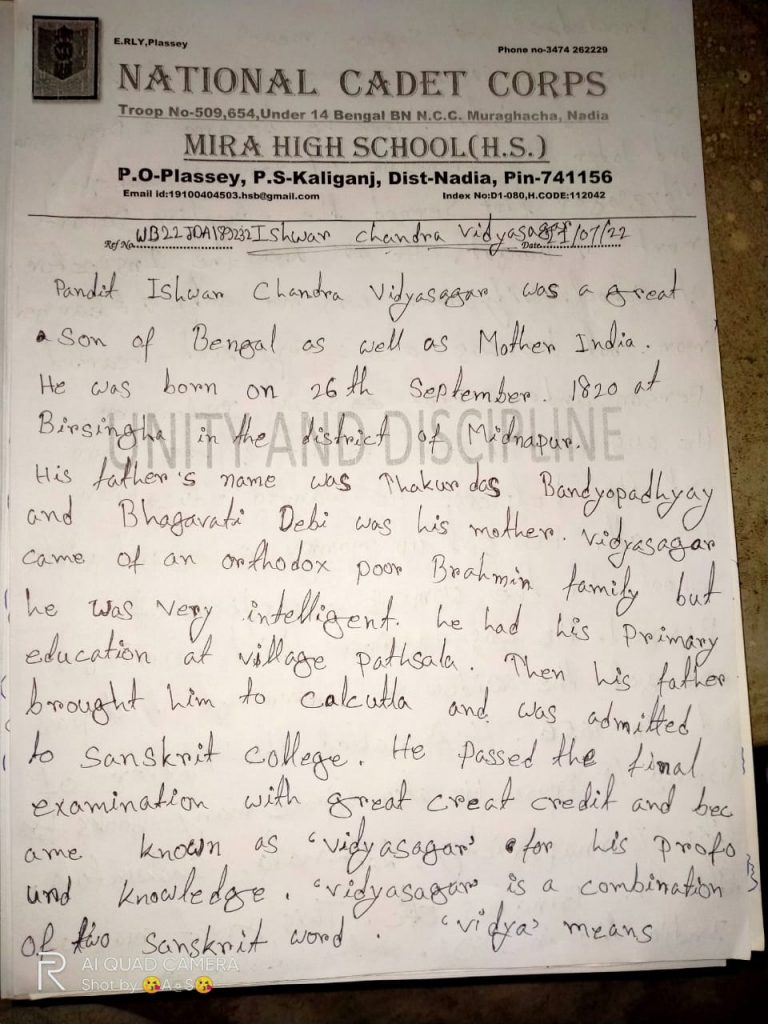 E.RLY,Plassey
Phone no-3474 262229
NATIONAL CADET CORPS
Troop No-509,654,Under 14 Bengal BN N.C.C. Muraghacha, Nadia
MIRA HIGH SCHOOL(H.S.)
P.O-Plassey, P.S-Kaliganj, Dist-Nadia, Pin-741156
Email id:19100404503.hsb@gmail.com Index No:D1-080,H.CODE:112042
Ref No. Ishwar Chandra Vidyasagar Date 21/07/22
Pandit Ishwar Chandra Vidyasagar was a great
Son of Bengal as well as Mother India.
He was born on 26th September. 1820 at
Birsingha in the district of Midnapur.
UNITY AND DISCIPLINE
His father's name was Thakurdas Bandyopadhyay
and Bhagavati Debi was his mother. Vidyasagar
came of an orthodox poor Brahmin family but
he was very intelligent. he had his Primary
education at village pathsala. Then his father
brought him to Calcutta and was admitted
to Sanskrit College. He Passed the final
examination with great creat credit and bec
ame known as 'Vidyasagar' for his profo
und knowledge. 'Vidyasagar' is a combination
of two Sanskrit word. 'Vidya' means
AI QUAD CAMERA
Shot by 😘A●S😘